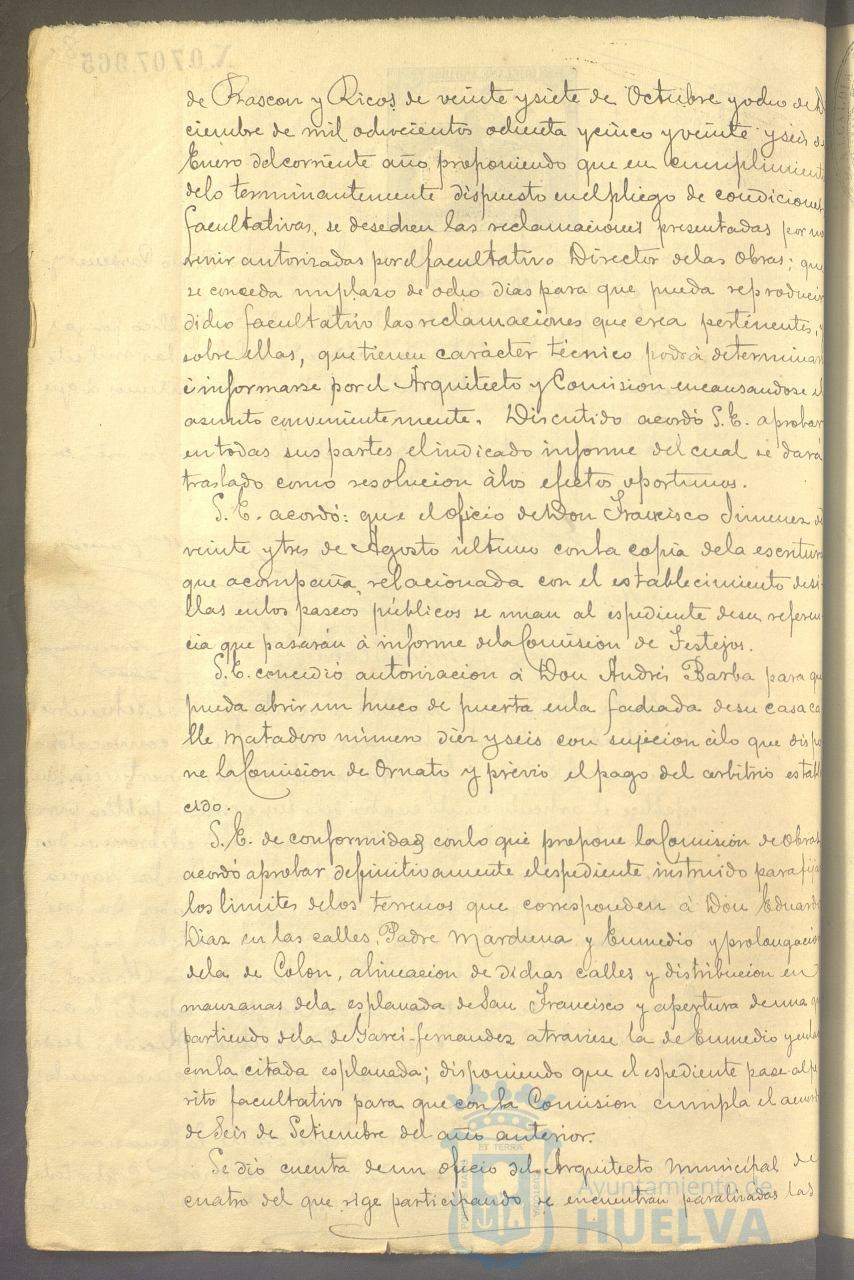 de Rascon y Ricos de veinte y siete de Octubre y ocho de Di
ciembre de mil ochocientos ochenta y cinco y veinte y seis de
Enero del corriente año proponiendo que en cumplimiento
de lo terminantemente dispuesto en el pliego de condiciones
facultativas, se desechen las reclamaciones presentadas por no
venir autorizadas por el facultativo Director de las Obras; que
se conceda un plazo de ocho dias para que pueda reproducir
dicho facultativo las reclamaciones que crea pertinentes, y
sobre ellas, que tienen carácter técnico podrá determinar
é informarse por el Arquitecto y Comision encausandose el
asunto convenientemente. Discutido acordó S.E. aprobar
en todas sus partes el indicado informe del cual se dará
traslado como resolucion á los efectos oportunos.
S.E. acordó: que el oficio de Don Francisco Jimenez de
veinte y tres de Agosto último con la copia de la escritura
que acompaña, relacionada con el establecimiento de si-
llas en los paseos públicos se unan al espediente de su referen
cia que pasarán á informe de la Comision de Festejos.
S.E. concedió autorizacion á Don Andrés Barba para que
pueda abrir un hueco de puerta en la fachada de su casa ca
lle Matadero número diez y seis con sujecion á lo que dispo
ne la Comision de Ornato y prévio el pago del arbitrio estable
cido.
S.E. de conformidad con lo que propone la Comision de Obras
acordó aprobar definitivamente el espediente instruido para fijar
los limites de los terrenos que corresponden á Don Eduardo
Diaz en las calles, Padre Marchena y Enmedio y prolongacion
de la de Colon, alineacion de dichas calles y distribucion en
manzanas de la esplanada de San Francisco y apertura de una que
partiendo de la de Garci-fernandez atraviese la de Enmedio y enlace
con la citada esplanada; disponiendo que el espediente pase al pe
rito facultativo para que con la Comision cumpla el acuerdo
de Seis de Setiembre del año anterior.
Se dió cuenta de un oficio del Arquitecto Municipal de
cuatro del que rige participando se encuentran paralizadas las
Ayuntamiento de
HUELVA